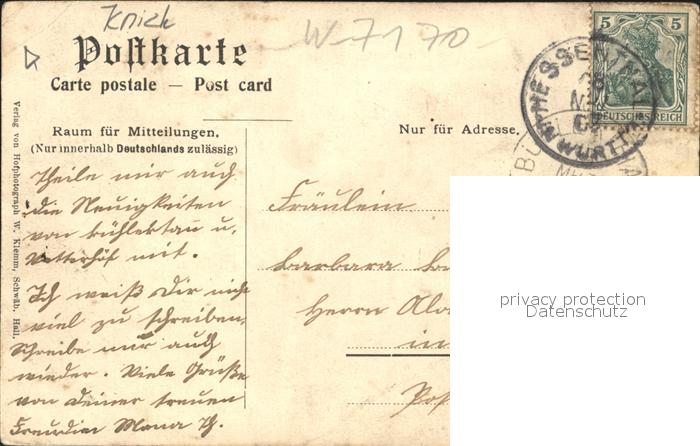 Knick
W-7170
Postkarte
Carte postale — Post card
Raum für Mitteilungen.
(Nur innerhalb Deutschlands zulässig)
Nur für Adresse.
5 5
DEUTSCHES REICH
HESSENTHAL
WÜRTT
Verlag von Hofphotograph W. Klemm, Schwäb. Hall.
Theile mir auch
die Neuigkeiten
von u.
mit.
Ich weiß Dir nicht
viel zu schreiben,
Schreibe mir auch
wieder. Viele Grüße
von deiner treuen
Freundin Th.
Fräulein
Barbara
Herrn
in
Pos
privacy protection
Datenschutz